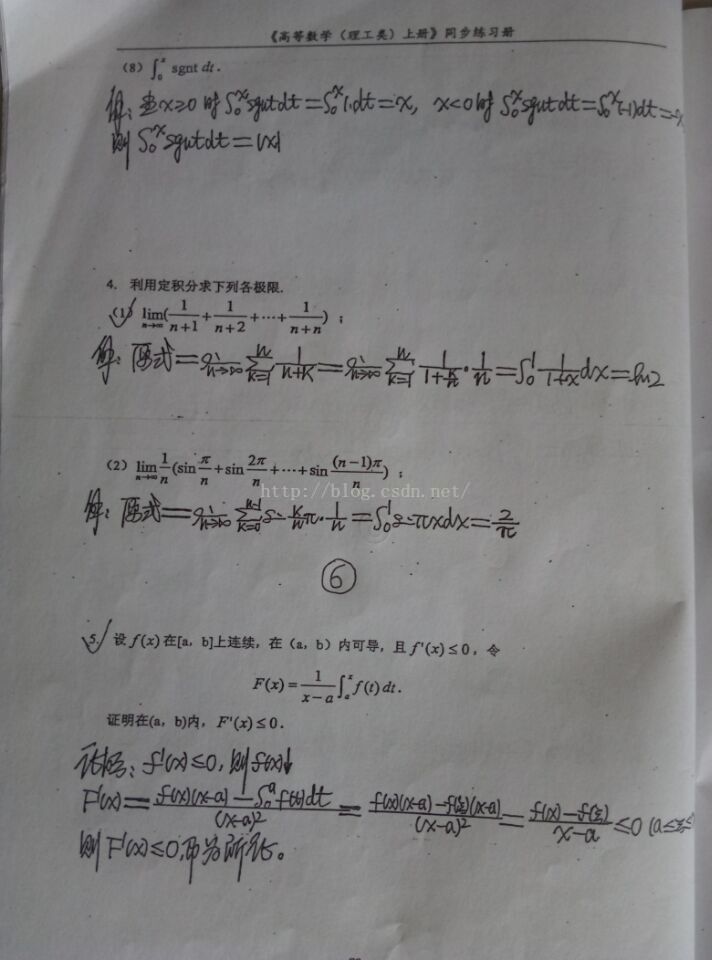 《高等数学（理工类）上册》同步练习册
(8) ∫₀ˣ sgnt dt.
解: 当x≥0时 ∫₀ˣsgntdt=∫₀ˣ1·dt=x, x<0时 ∫₀ˣsgntdt=∫₀ˣ(-1)dt=-x
则 ∫₀ˣsgntdt=|x|
4. 利用定积分求下列各极限.
(1) lim_{n→∞}(1/(n+1)+1/(n+2)+⋯+1/(n+n)) ;
解: 原式=lim_{n→∞} ∑_{k=1}^{n} 1/(n+k)=lim_{n→∞} ∑_{k=1}^{n} 1/(1+k/n)·1/n=∫₀¹ 1/(1+x)dx=ln2
(2) lim_{n→∞} 1/n(sin π/n+sin 2π/n+⋯+sin (n-1)π/n) ;
http://blog.csdn.net/
解: 原式=lim_{n→∞} ∑_{k=0}^{n-1} sin k/n π·1/n=∫₀¹sinπxdx=2/π
⑥
5. 设 f(x)在[a, b]上连续，在（a，b）内可导，且 f'(x)≤0，令
F(x)=1/(x-a) ∫ₐˣ f(t)dt.
证明在(a，b)内，F'(x)≤0.
证明: f'(x)≤0, 则f(x)↓
F'(x)=(f(x)(x-a)-∫₀ᵃf(t)dt)/(x-a)²=(f(x)(x-a)-f(ξ)(x-a))/(x-a)²=(f(x)-f(ξ))/(x-a)≤0 (a≤ξ≤
则F'(x)≤0,即为所证。